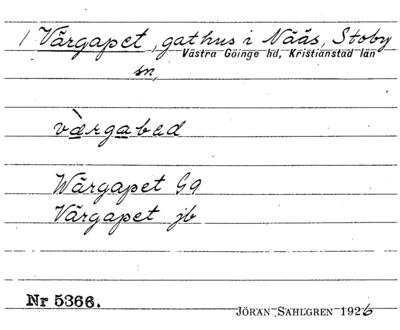 1 Värgapet, gathus i Nääs, Stoby
Västra Göinge hd, Kristianstad län
sn,
vàrgabed
Wärgapet G9
Värgapet jb
Nr 5366.
JÖRAN SAHLGREN 1926